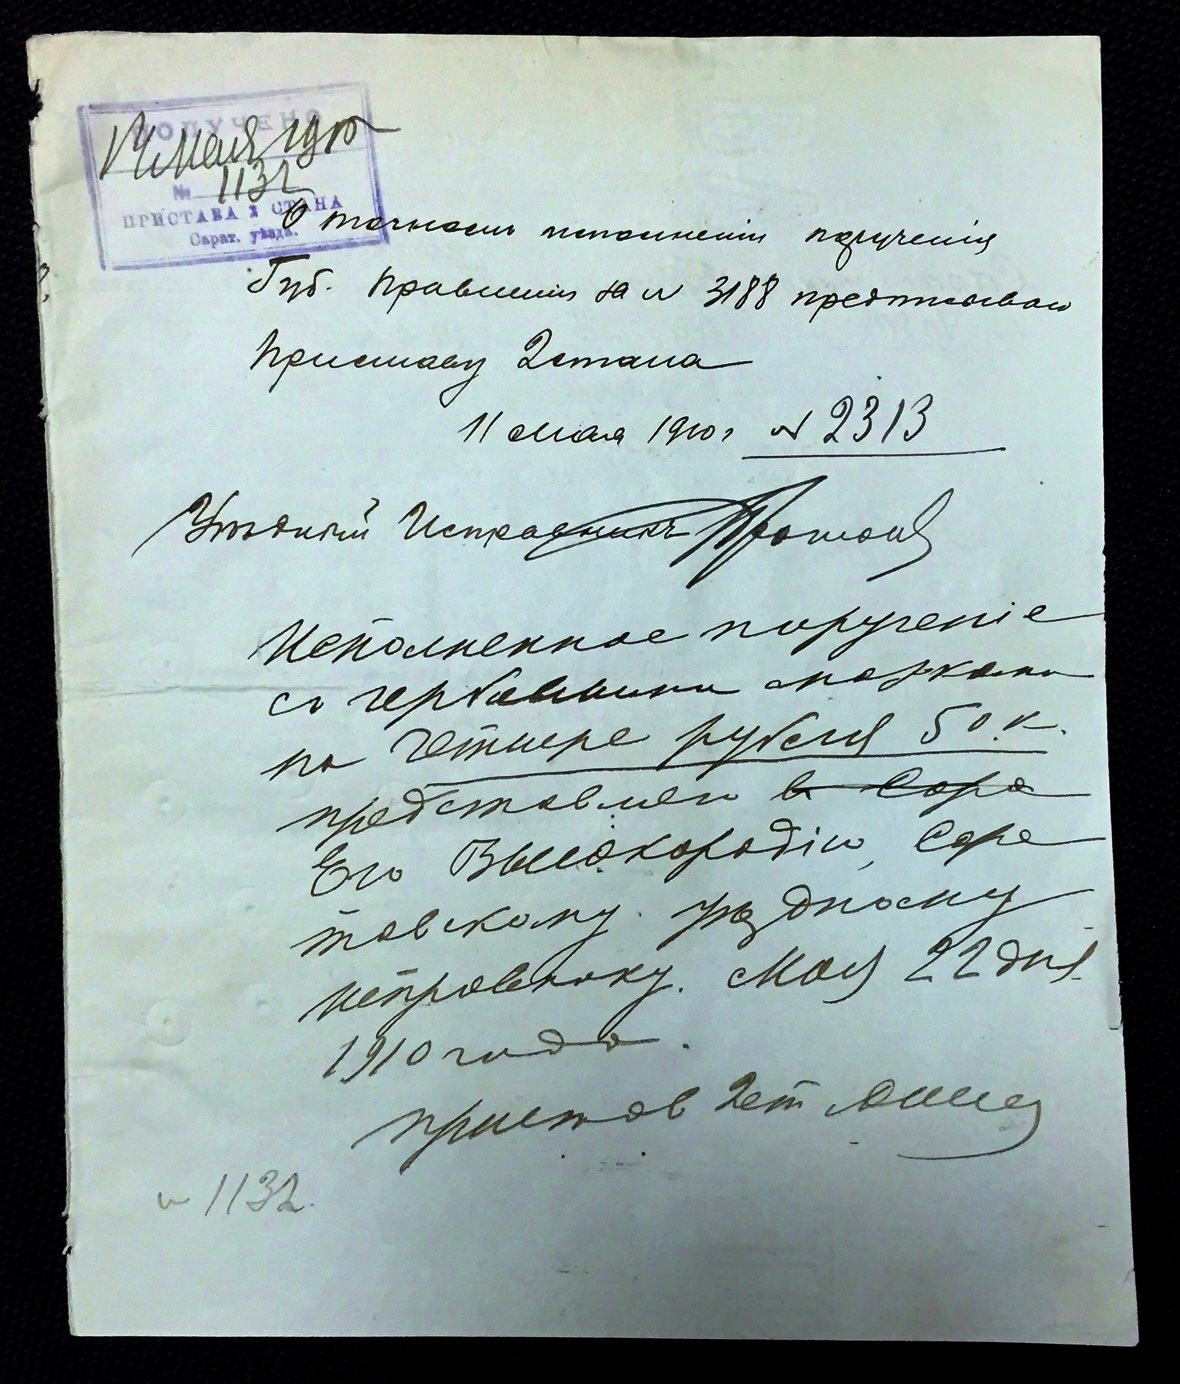 ПОЛУЧЕНО
14 Мая 1910
№ 1132
ПРИСТАВА 2 СТАНА
Сарат. уѣзда.
О точномъ исполненіи порученія
Губ. Правленія за № 3188 предписываю
Приставу 2 стана
11 Мая 1910 г. № 2313
Уѣздный Исправникъ
Исполненное порученіе
съ гербовыми марками
на четыре рубля 50 к.
представляю в Сара
Его Высокородію, Сара
товскому уѣздному
исправнику. Мая 22 дня
1910 года.
Пристав 2 ст
№ 1132.